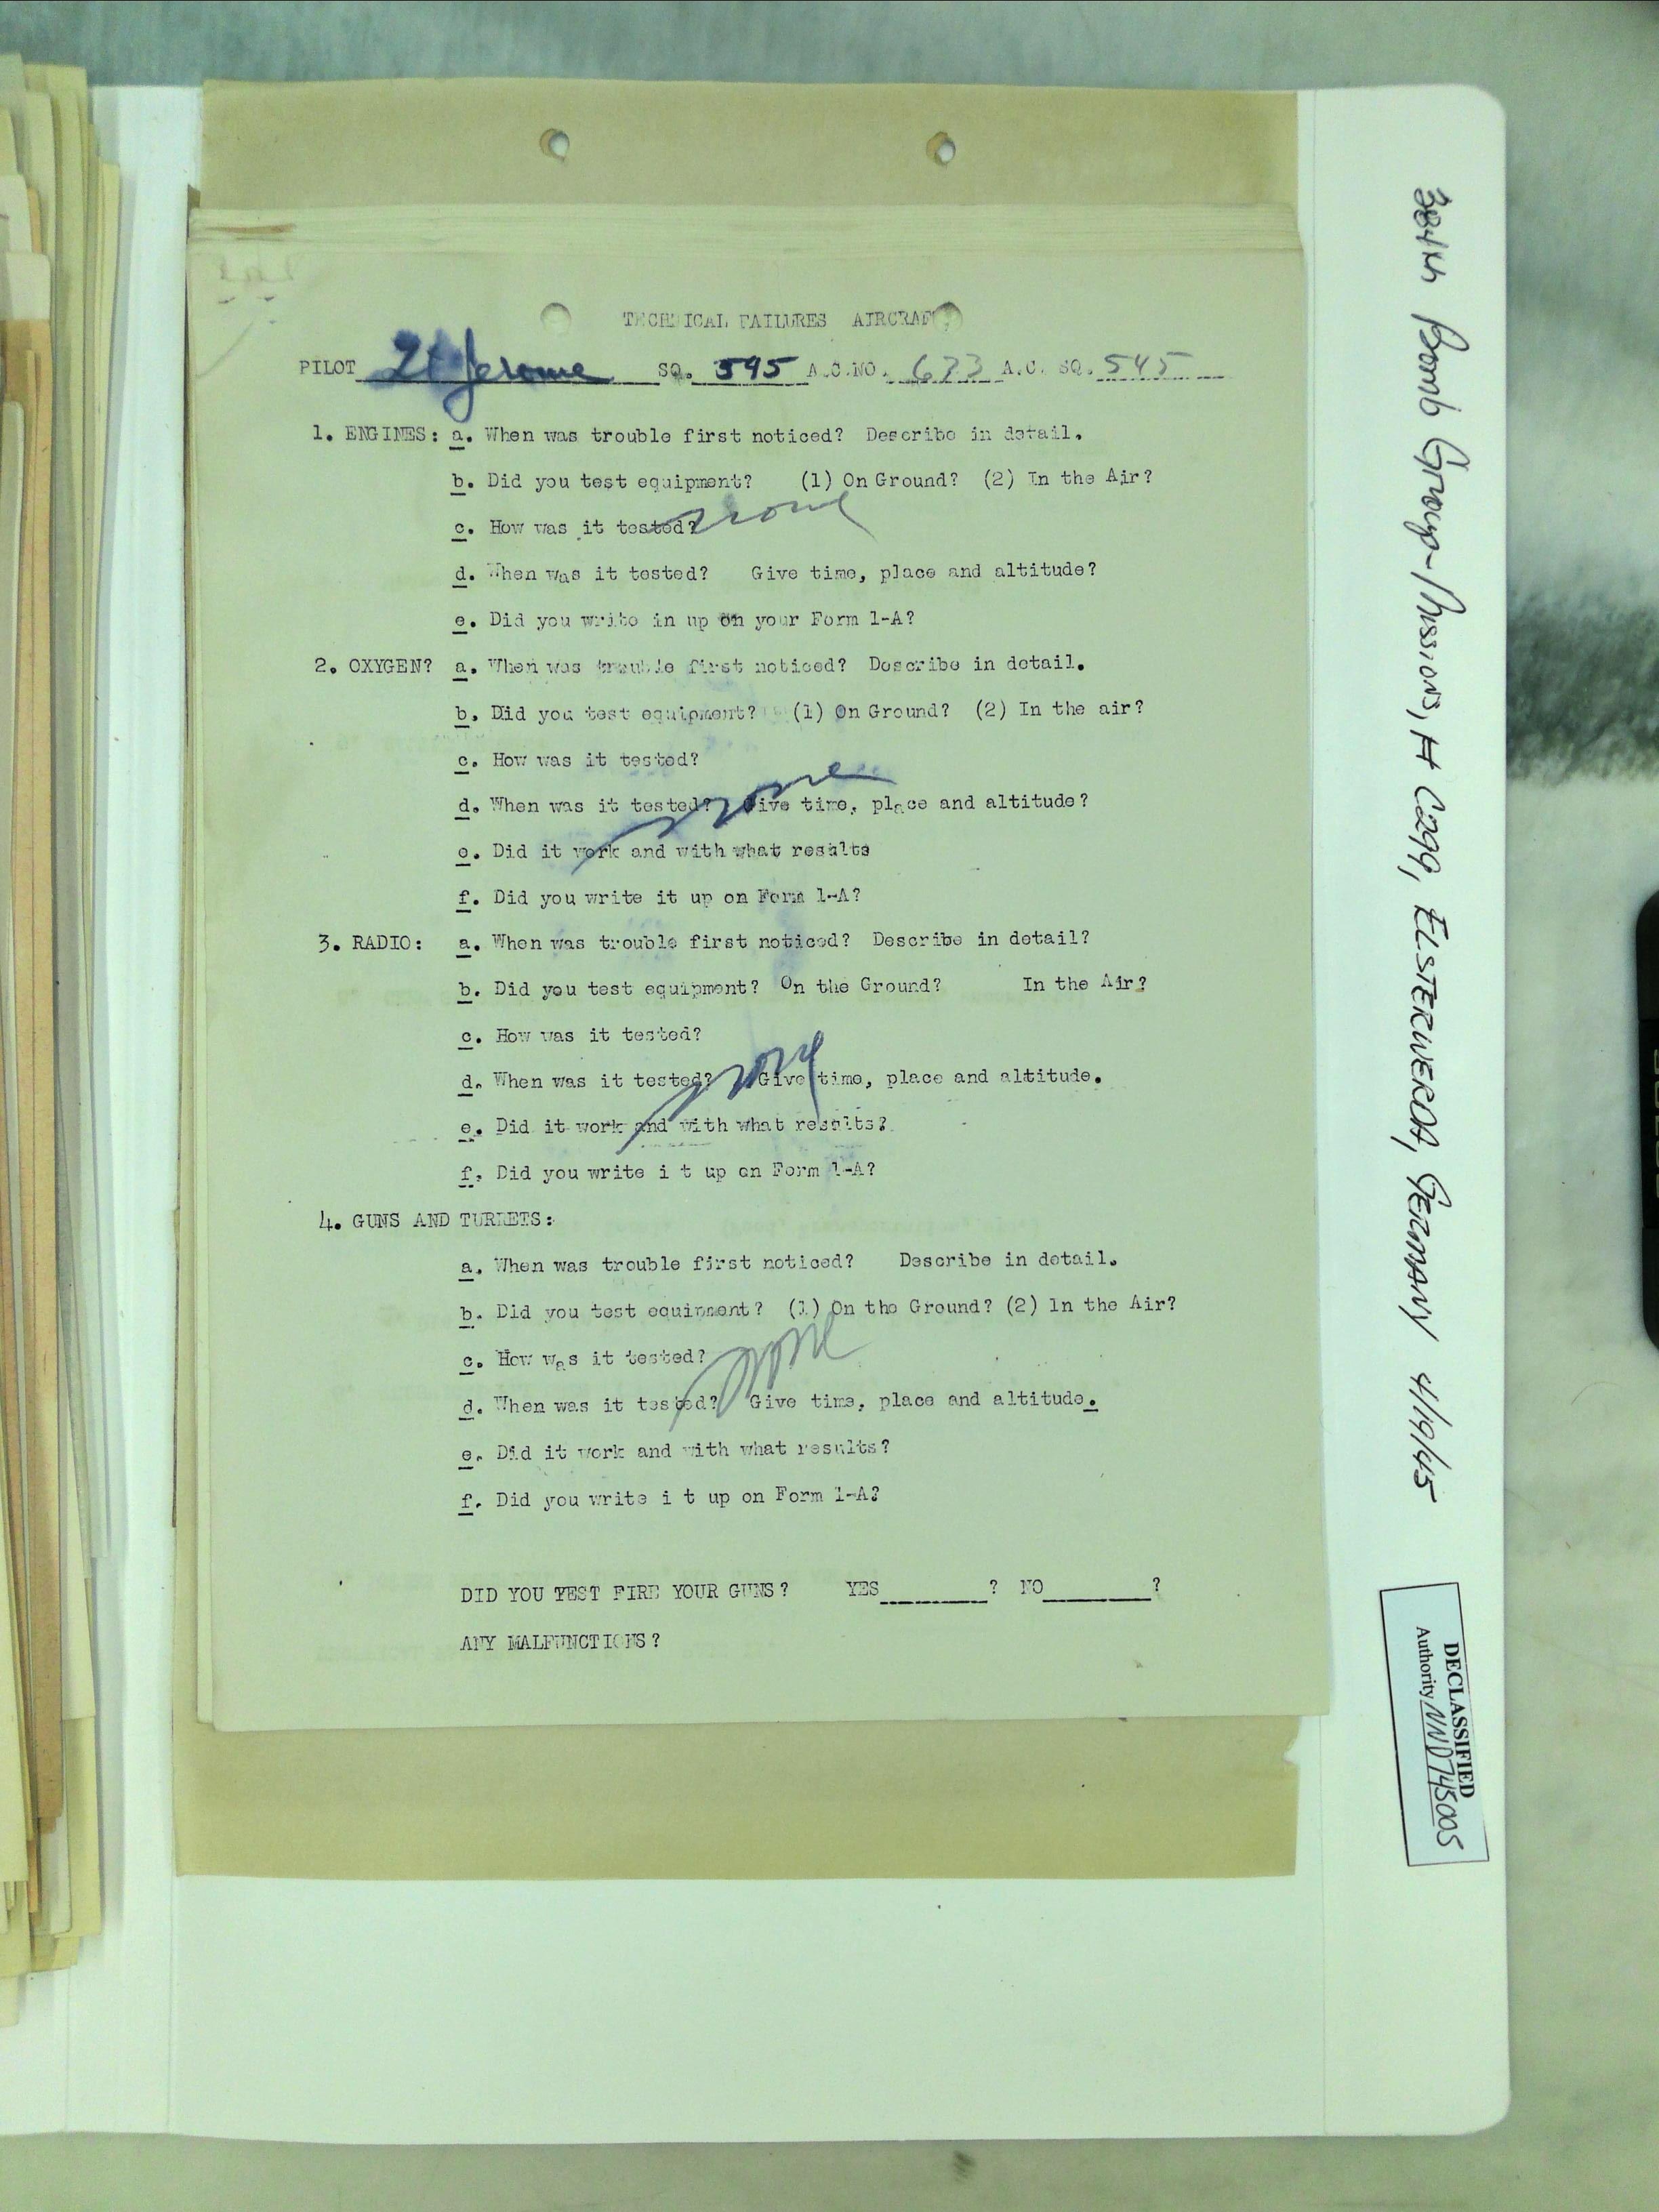 TECHNICAL FAILURES AIRCRAFT
PILOT Lt Jerome SQ. 545 A.C.NO. 673 A.C. SQ. 545
1. ENGINES: a. When was trouble first noticed? Describe in detail.
b. Did you test equipment? (1) On Ground? (2) In the Air?
none
c. How was it tested?
d. When was it tested? Give time, place and altitude?
e. Did you write in up on your Form 1-A?
2. OXYGEN? a. When was trouble first noticed? Describe in detail.
b. Did you test equipment? (1) On Ground? (2) In the air?
c. How was it tested?
none
d. When was it tested? Give time, place and altitude?
e. Did it work and with what results
f. Did you write it up on Form 1-A?
3. RADIO: a. When was trouble first noticed? Describe in detail?
b. Did you test equipment? On the Ground? In the Air?
c. How was it tested?
none
d. When was it tested? Give time, place and altitude.
e. Did it work and with what results?
f. Did you write i t up on Form 1-A?
4. GUNS AND TURRETS:
a. When was trouble first noticed? Describe in detail.
b. Did you test equipment? (1) On the Ground? (2) In the Air?
none
c. How was it tested?
d. When was it tested? Give time, place and altitude.
e. Did it work and with what results?
f. Did you write i t up on Form 1-A?
DID YOU TEST FIRE YOUR GUNS? YES ? NO ?
ANY MALFUNCTIONS?
384th Bomb Group-Mission, # C299, ELSTERWERDA, GERMANY 4/19/45
DECLASSIFIED
Authority NND745005